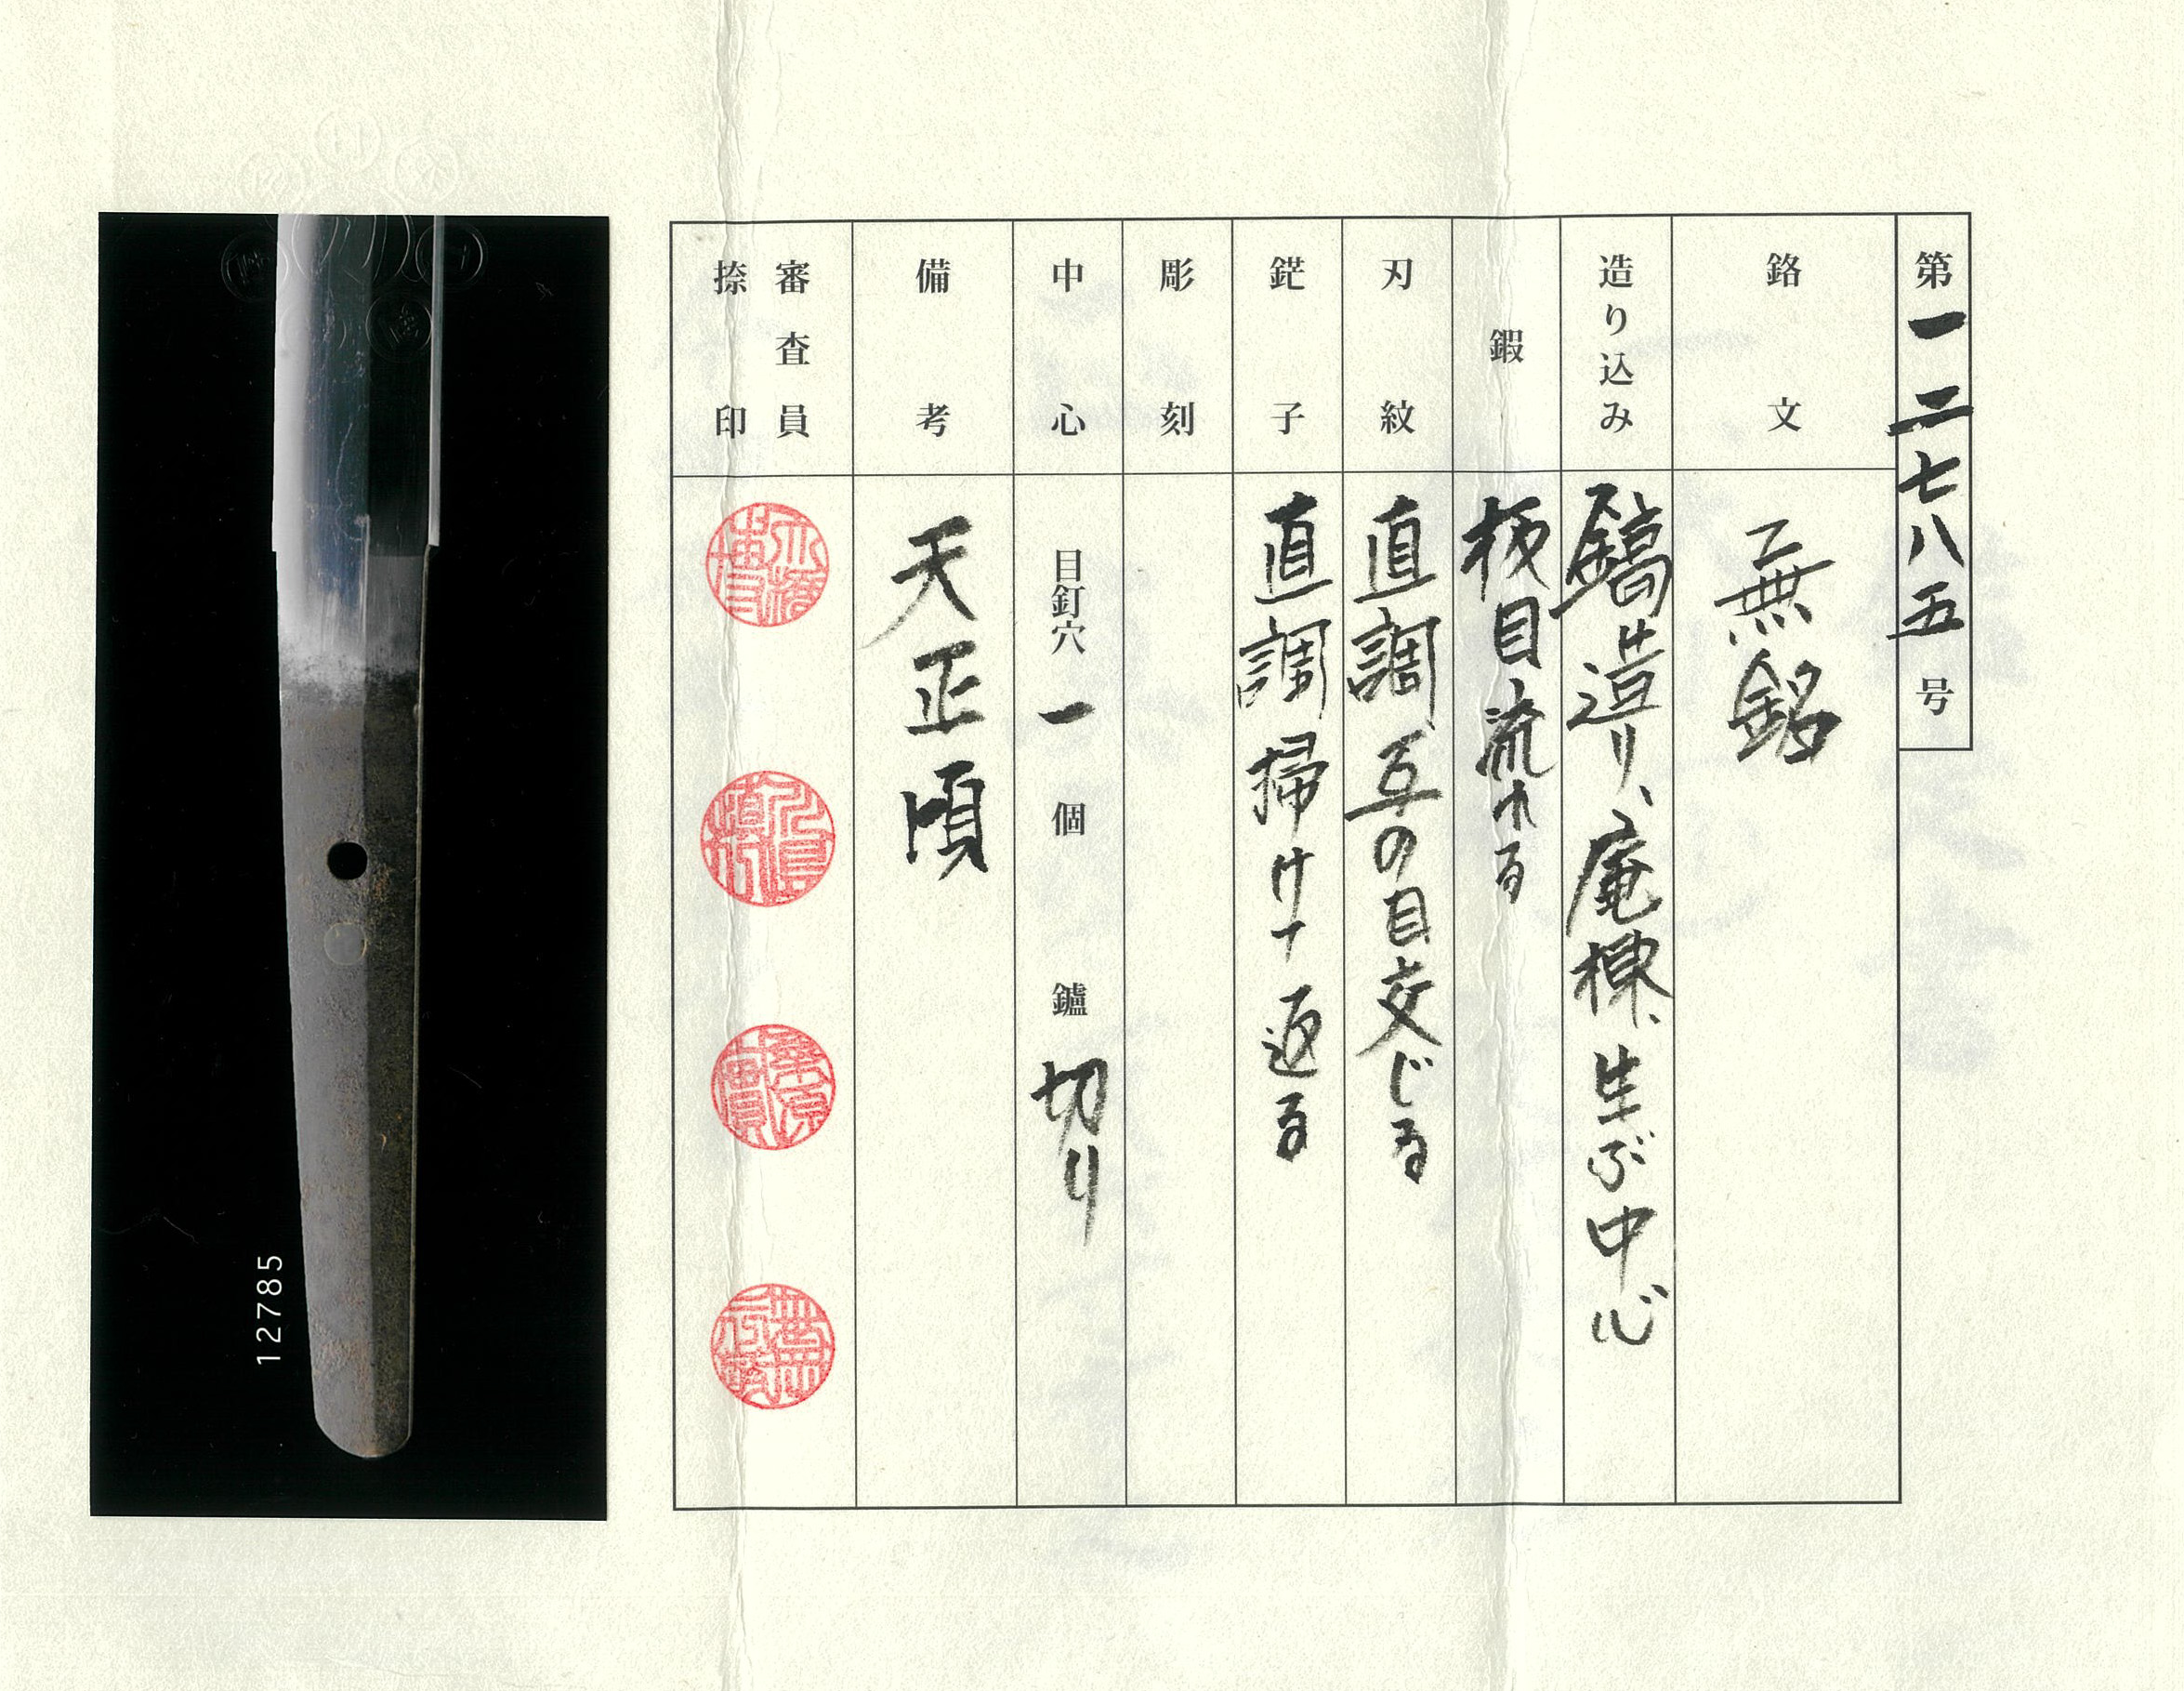 第一二七八五号
銘文
無銘
造り込み
鎬造り、庵棟、生ぶ中心
鍜
板目流れる
刃紋
直調互の目交じる
鋩子
直調掃けて返る
彫刻
中心
目釘穴 一 個 鑢 切り
備考
天正頃
審査員
捺印
12785